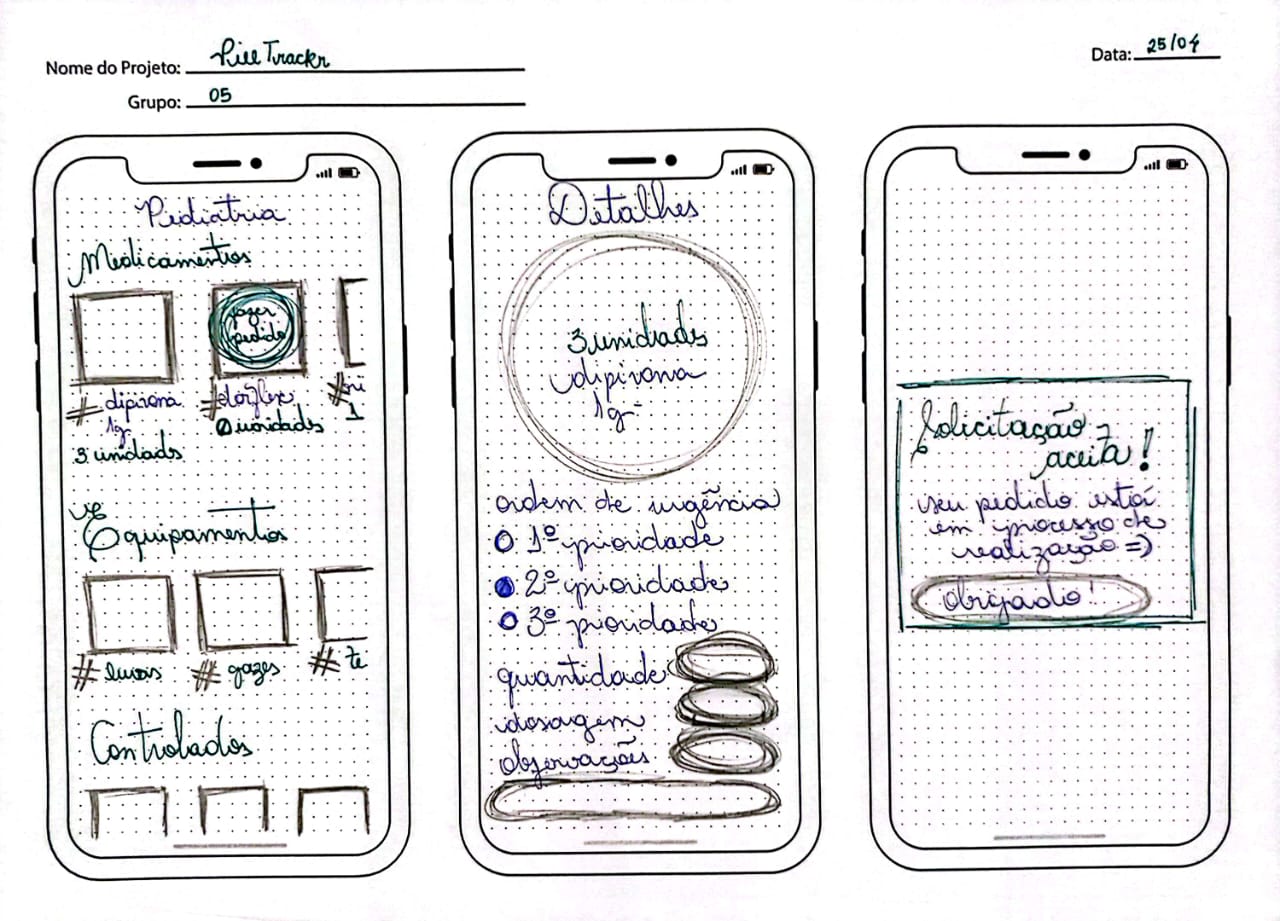 Nome do Projeto: Pill Trackr
Data: 25/04
Grupo: 05
Pediatria
Medicamentos
fazer
pedido
# dipirona
1g
3 unidads
# dorflex
0 unidades
# ni
1
Equipamentos
# luvas
# gazes
# te
Controlados
Detalhes
3 unidads
dipirona
1g
ordem de urgência
1º prioridade
2º prioridade
3º prioridade
quantidade
dosagem
observações
Solicitação
aceita!
seu pedido está
em processo de
realização =)
obrigado!